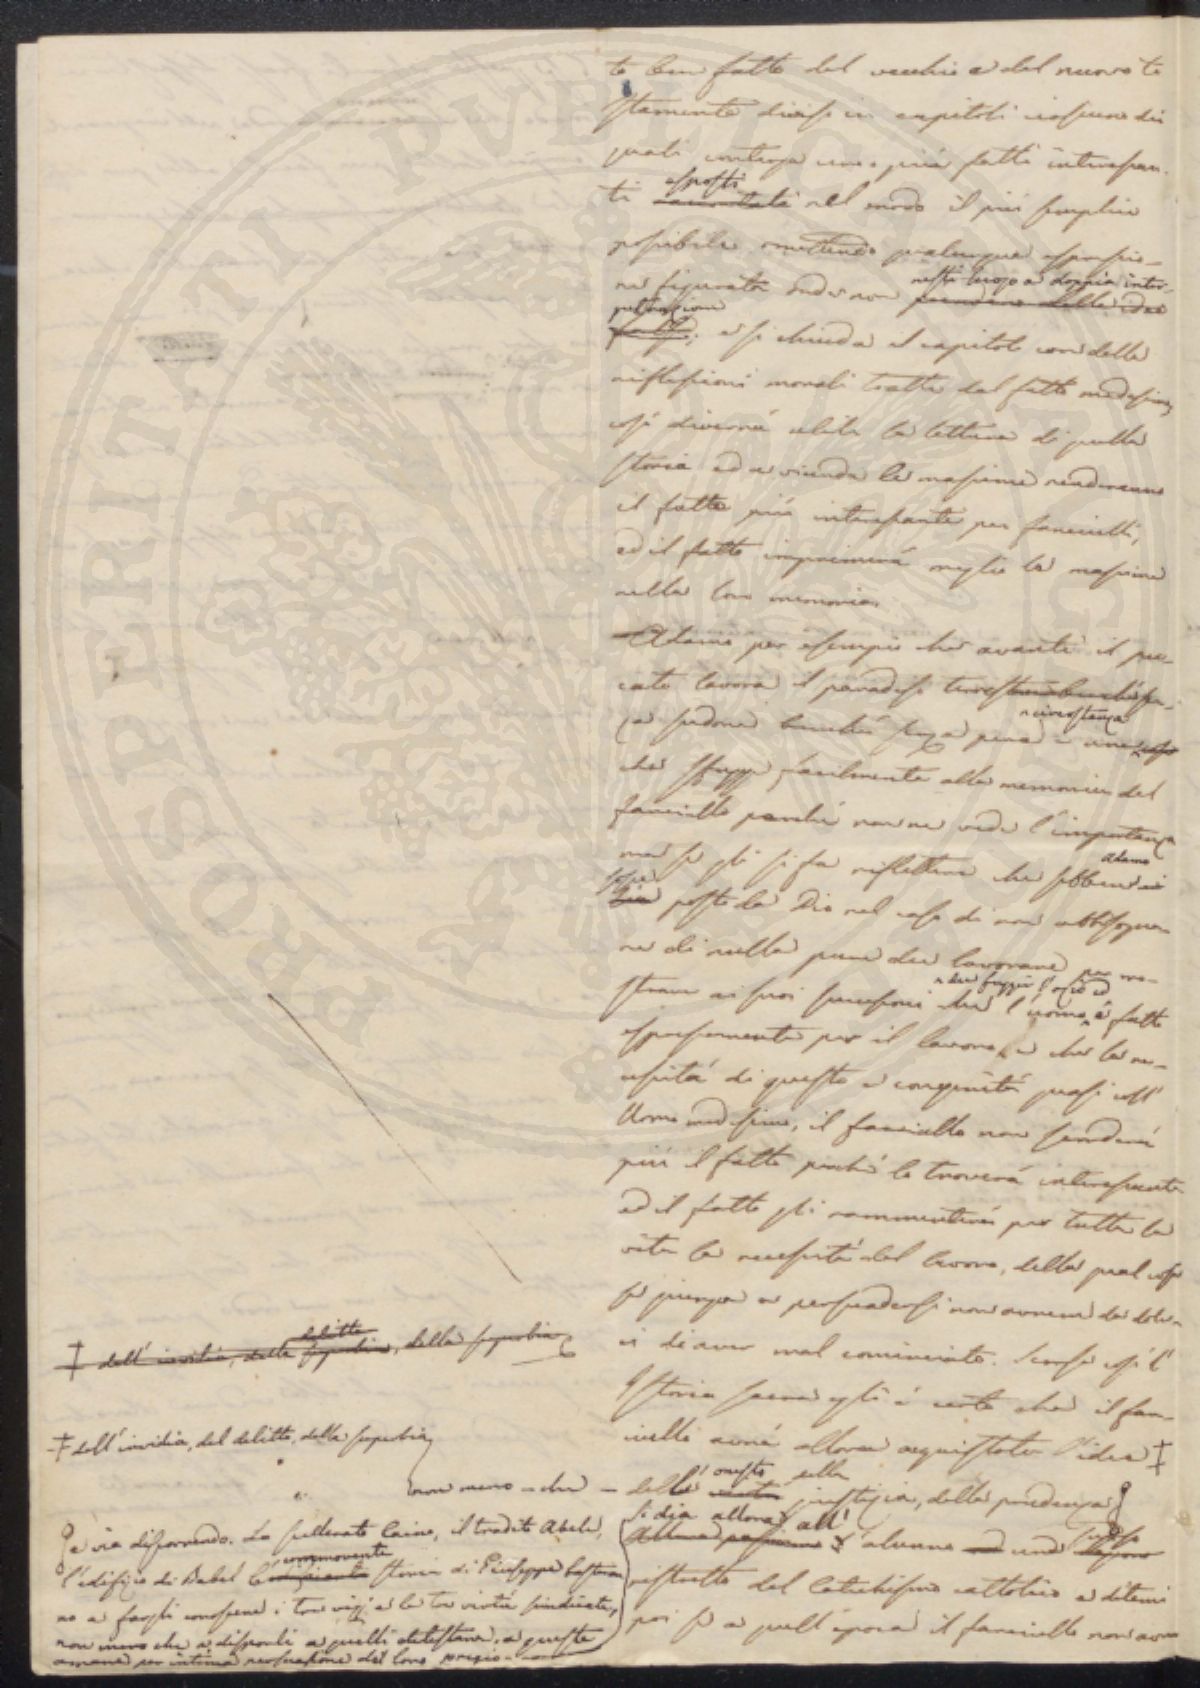 to ben fatto del vecchio e del nuovo te
stamento diviso in capitoli ciascuno dei
quali contenga uno o più fatti interessan-
esposti
ti raccontati nel modo il più semplice
possibile omettendo qualunque espressio-
resti luogo a doppia inter-
ne figurata onde non prendano delle idee
pretazione
false; e si chiuda il capitolo con delle
riflessioni morali tratte dal fatto medesimo,
così diverrà utile la lettura di quella
storia ed a vicenda le massime renderanno
il fatto più interessante pei fanciulli,
ed il fatto imprimerà meglio la massima
nella loro memoria.
Adamo per esempio che avanti il pec-
cato lavora il paradiso terrestre
circostanza
sudore benchè senza pena è una
che sfugge facilmente alla memoria del
fanciullo perchè non ne vede l'importanza
Adamo
ma se gli si fa riflettere che sebbene
posto da Dio nel caso di non abbisogna-
re di nulla pure deve lavorare per mo-
deve fuggir l'ozio ed
strare ai suoi successori che l'uomo è fatto
espressamente per il lavoro, e che la ne-
cessità di questo è congenita quasi coll'
Uomo medesimo, il fanciullo non scorderà
più il fatto perchè lo troverà interessante
ed il fatto gli rammenterà per tutta la
vita la necessità del lavoro, della qual cosa
se giunga a persuadersi non avremo da doler-
ci di aver mal cominciato. Scorsa così l'
Istoria sacra egli è certo che il fan-
ciullo avrà allora acquistata l'idea ‡
onesto della
dell' giustizia, della prudenza
si dia allora all'
alunno un
ristretto del Catechismo cattolico e ditemi
poi se a quell'epoca il fanciullo non avrà
delitto
‡ dell'invidia, della superbia, della superbia
‡ dell'invidia, del delitto, della superbia
non meno – che –
e via discorrendo. Lo scellerato Caino, il tradito Abele,
commovente
l'edifizio di Babel la storia di Giuseppe baste-
no a fargli conoscere i tre vizj e le tre virtù indicate,
non meno che a disporlo a quelli detestare, a queste
amare per intima persuasione del loro pregio.